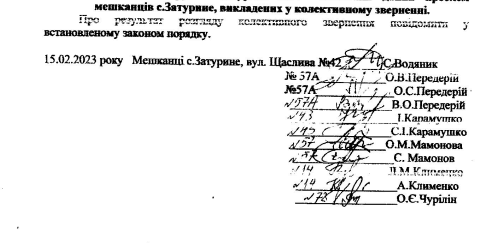 мешканців с.Затурине, викладених у колективному зверненні.
Про результат розгляду колективного звернення повідомити у
встановленому законом порядку.
15.02.2023 року Мешканці с.Затурине, вул. Щаслива №42 С.Водяник
№ 57А О.В.Передерій
№57А О.С.Передерій
№57А В.О.Передерій
№43 І.Карамушко
№43 С.І.Карамушко
№57 О.М.Мамонова
С. Мамонов
№14 Клименко
№14 А.Клименко
№72 О.Є.Чурілін